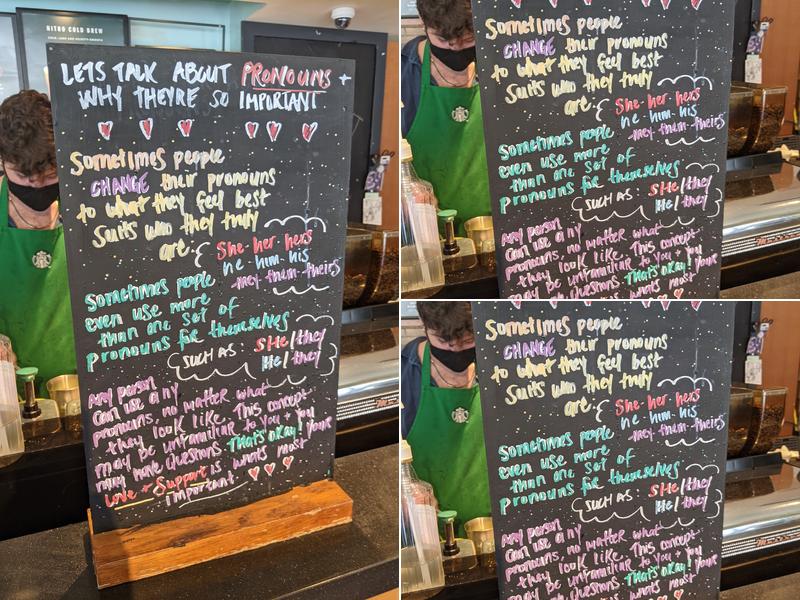 NITRO COLD BREW
LETS TALK ABOUT PRONOUNS
WHY THEYRE SO IMPORTANT
Sometimes people
CHANGE their pronouns
to what they feel best
Suits who they truly
are. She-her-hers
he-him-his
they-them-theirs
Sometimes people
even use more
than one set of
pronouns for themselves
SUCH AS SHe/they
He/they
Any person
Can use any
pronouns, no matter what
they look like. This concept
may be unfamiliar to you + you
may have questions. That's okay! Your
Love + Support is whats most
important
Sometimes people
CHANGE their pronouns
to what they feel best
Suits who they truly
are. She-her-hers
he-him-his
they-them-theirs
Sometimes people
even use more
than one set of
pronouns for themselves
SUCH AS SHe/they
He/they
Any person
Can use any
pronouns, no matter what
they look like. This concept
may be unfamiliar to you + you
may have questions. That's okay! Your
Sometimes people
CHANGE their pronouns
to what they feel best
Suits who they truly
are. She-her-hers
he-him-his
they-them-theirs
Sometimes people
even use more
than one set of
pronouns for themselves
SUCH AS SHe/they
He/they
Any person
Can use any
pronouns, no matter what
they look like. This concept
may be unfamiliar to you + you
may have questions. That's okay! Your